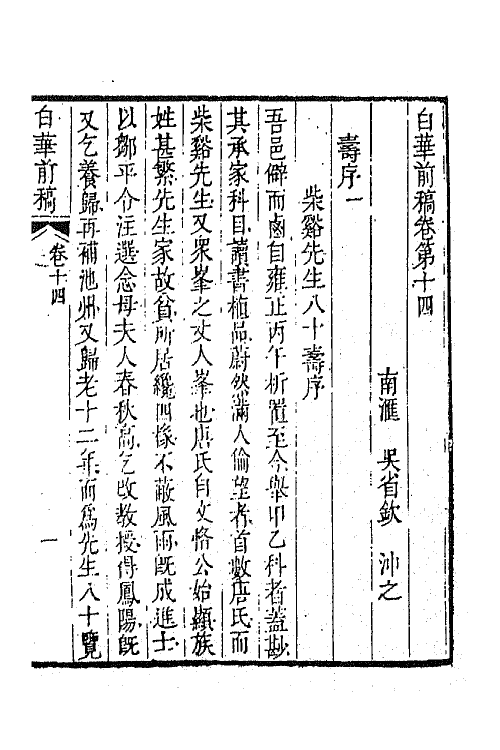 白華前稿卷第十四
南滙　吳省欽　沖之
壽序一
柴谿先生八十壽序
吾邑僻而鹵自雍正丙午析置至今舉甲乙科者蓋尠
其承家科目讀書植品蔚然滿人倫望者首數唐氏而
柴谿先生又衆峯之丈人峯也唐氏自文恪公始顯族
姓甚繁先生家故貧所居纔四椽不蔽風雨旣成進士
以鄒平令注選念母夫人春秋高乞改教授得鳳陽旣
又乞養歸再補池州又歸老十二年而爲先生八十覽
白華前稿
卷十四
一